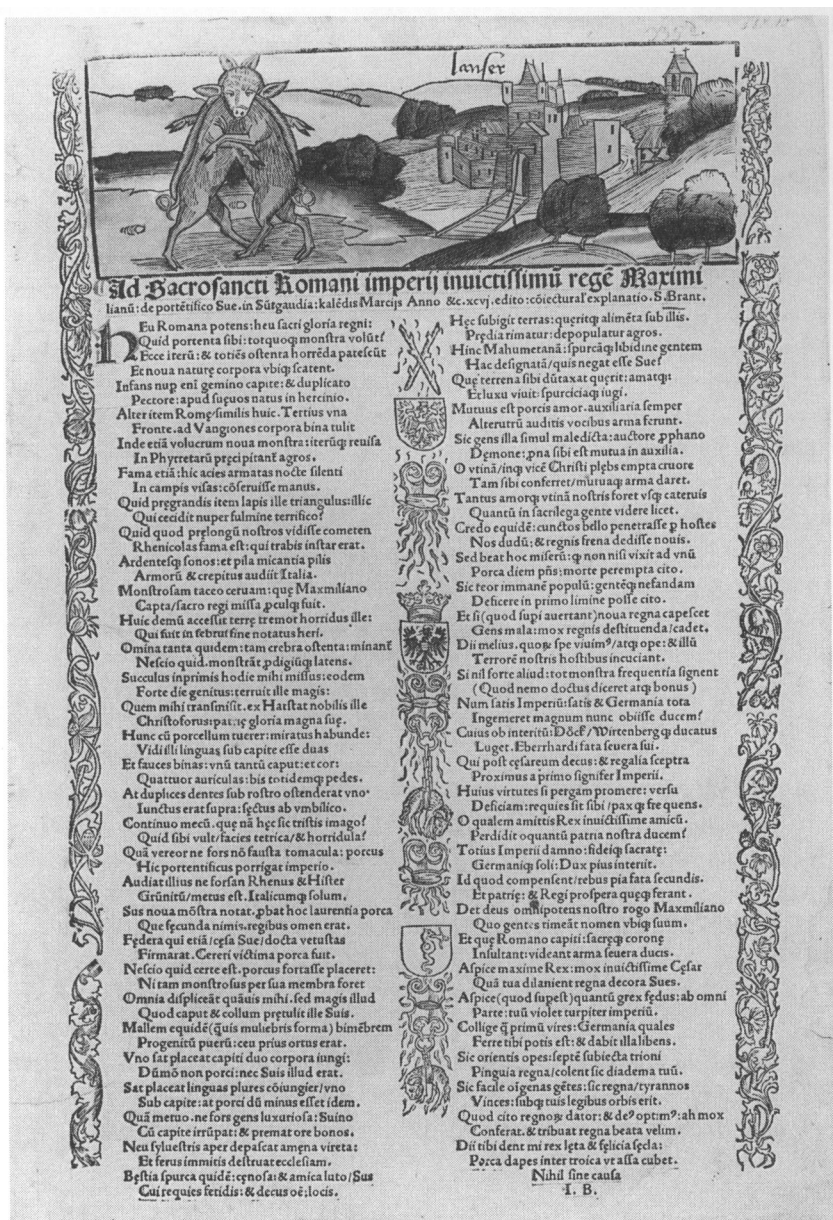 lanser
Ad Sacrosancti Romani imperij inuictissimū regē Maximi
lianū: de portētifico Sue. in Sūtgaudia: kalēdis Marcijs Anno &c. xcvj. edito: cōiectural' explanatio. S. Brant.
hEu Romana potens: heu sacri gloria regni:
Quid portenta sibi: totquoq; monstra volūt?
Ecce iterū: & totiēs ostenta horrēda patescūt
Et noua naturę corpora vbiq; scatent.
Infans nup enī gemino capite: & duplicato
Pectore: apud suęuos natus in hercinio.
Alter item Romę/similis huic. Tertius vna
Fronte. ad Vangiones corpora bina tulit
Inde etiā volucrum noua monstra: iterūq; reuisa
In Phyrretarū pręcipitant agros.
Fama etiā: hic acies armatas nocte silenti
In campis visas: cōseruisse manus.
Quid pręgrandis item lapis ille triangulus: illic
Qui cecidit nuper fulmine terrifico?
Quid quod pręlongū nostros vidisse cometen
Rhenicolas fama est: qui trabis instar erat.
Ardentesq; sonos: et pila micantia pilis
Armorū & crepitus audiit Italia.
Monstrosam taceo ceruam: quę Maxmiliano
Capta/sacro regi missa ꝓculq; fuit.
Huic demū accessit terrę tremor horridus ille:
Qui fuit in februi fine notatus heri.
Omina tanta quidem: tam crebra ostenta: minant
Nescio quid. monstrāt ꝓdigiūq; latens.
Succulus inprimis hodie mihi missus: eodem
Forte die genitus: terruit ille magis:
Quem mihi transmisit. ex Harstat nobilis ille
Christoforus: patrię gloria magna suę.
Hunc cū porcellum tuerer: miratus habunde:
Vidi illi linguas sub capite esse duas
Et fauces binas: vnū tantū caput: et cor:
Quattuor auriculas: bis totidemq; pedes.
At duplices dentes sub rostro ostenderat vno.
Iunctus erat supra: sęctus ab vmbilico.
Continuo mecū. quę nā hęc sic tristis imago?
Quid sibi vult/facies tetrica/& horridula?
Quā vereor ne fors nō fausta tomacula: porcus
Hic portentificus porrigat imperio.
Audiat illius ne forsan Rhenus & Hister
Grūnitū/metus est. Italicumq; solum.
Sus noua mōstra notat. ꝓbat hoc laurentia porca
Quę fęcunda nimis. regibus omen erat.
Fędera qui etiā/cęsa Sue/docta vetustas
Firmarat. Cereri victima porca fuit.
Nescio quid certe est. porcus fortasse placeret:
Ni tam monstrosus per sua membra foret
Omnia displiceāt quāuis mihi. sed magis illud
Quod caput & collum prętulit ille Suis.
Mallem equidē (q̄uis muliebris forma) bimēbrem
Progenitū puerū: ceu prius ortus erat.
Vno sat placeat capiti duo corpora iungi:
Dūmō non porci: nec Suis illud erat.
Sat placeat linguas plures cōiungier/vno
Sub capite: at porci dū minus esset idem.
Quā metuo. ne fors gens luxuriosa: Suino
Cū capite irrūpat: & premat ore bonos.
Neu syluestris aper depascat amęna vireta:
Et ferus immitis destruat ecclesiam.
Bęstia spurca quidē: cęnosa: & amica luto/Sus
Cui requies fetidis: & decus oē: locis.
Hęc subigit terras: quęritq; alimēta sub illis.
Prędia rimatur: depopulatur agros.
Hinc Mahumetanā: spurcāq; libidine gentem
Hac designatā/quis negat esse Sue?
Quę terrena sibi dūtaxat quęrit: amatq;:
Et luxu viuit: spurciciaq; iugi.
Mutuus est porcis amor. auxiliaria semper
Alterutrū auditis vocibus arma ferunt.
Sic gens illa simul maledicta: auctore ꝓphano
Dęmone: ꝓna sibi est mutua in auxilia.
O vtinā/inq; vicē Christi plębs empta cruore
Tam sibi conferret/mutuaq; arma daret.
Tantus amorq; vtinā nostris foret vsq; cateruis
Quantū in sacrilega gente videre licet.
Credo equidē: cunctos bello penetrasse ꝑ hostes
Nos dudū: & regnis frena dedisse nouis.
Sed beat hoc miserū: q; non nisi vixit ad vnū
Porca diem pn̄s: morte perempta cito.
Sic reor immanē populū: gentēq; nefandam
Deficere in primo limine posse cito.
Et si (quod supi auertant) noua regna capescet
Gens mala: mox regnis destituenda/cadet.
Dii melius. quorū spe viuim⁹/atq; ope: & illū
Terrorē nostris hostibus incuciant.
Si nil forte aliud: tot monstra frequentia signent
(Quod nemo doctus diceret atq; bonus)
Num satis Imperiū: satis & Germania tota
Ingemeret magnum nunc obiisse ducem?
Cuius ob interitū: Wirtenberg q; ducatus
Luget. Eberrhardi fata seuera sui.
Qui post cęsareum decus: & regalia sceptra
Proximus a primo signifer Imperii.
Huius virtutes si pergam promere: versu
Deficiam: requies sit sibi/pax q; frequens.
O qualem amittis Rex inuictissime amicū.
Perdidit o quantū patria nostra ducem?
Totius Imperii damno: fideiq; sacratę:
Germaniq; soli: Dux pius interiit.
Id quod compensent/rebus pia fata secundis.
Et patrię: & Regi prospera quęq; ferant.
Det deus omnipotens nostro rogo Maxmiliano
Quo gentes timeāt nomen vbiq; suum.
Et quę Romano capiti: sacręq; coronę
Insultant: videant arma seuera ducis.
Aspice maxime Rex: mox inuictissime Cęsar
Quā tua dilanient regna decora Sues.
Aspice (quod supest) quantū grex fędus: ab omni
Parte: tuū violet turpiter imperiū.
Collige q̄ primū vires: Germania quales
Ferre tibi potis est: & dabit illa libens.
Sic orientis opes: septē subiecta trioni
Pinguia regna/colent sic diadema tuū.
Sic facile oīgenas gētes: sic regna/tyrannos
Vinces: subq; tuis legibus orbis erit.
Quod cito regnorū dator: & de⁹ opt: m⁹: ah mox
Conferat. & tribuat regna beata velim.
Dii tibi dent mi rex lęta & fęlicia sęcla:
Porca dapes inter troica vt assa cubet.
Nihil sine causa
I. B.